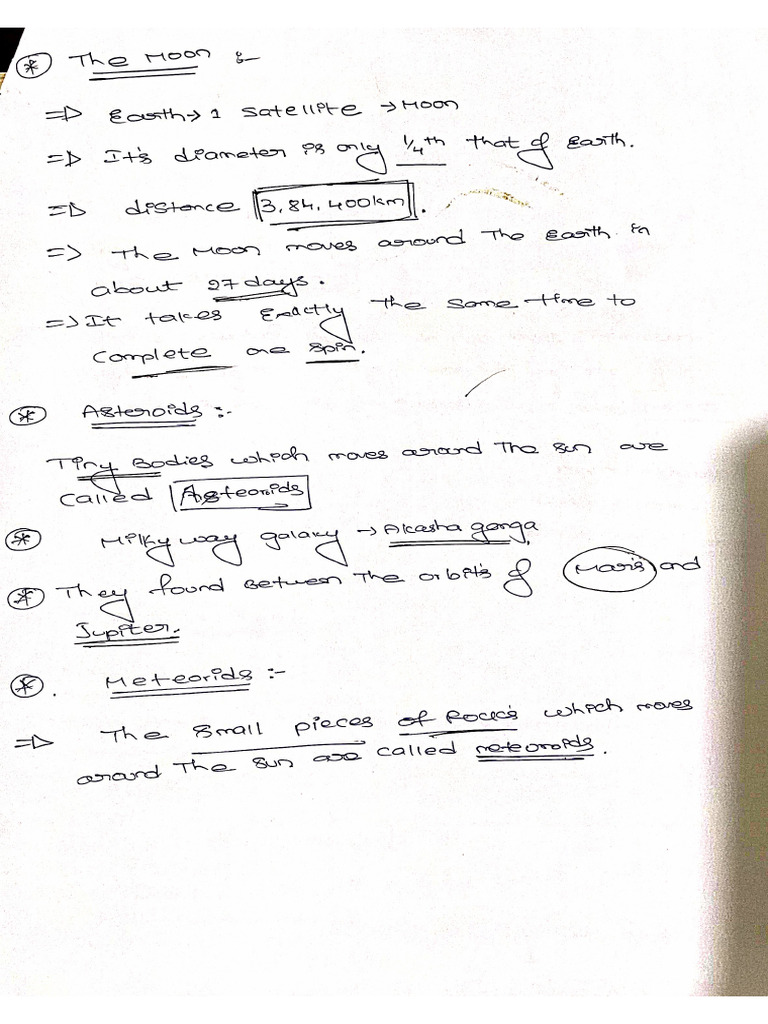 * The Moon :-
=> Earth → 1 Satellite → Moon
=> It's diameter is only 1/4th that of Earth.
=> distance 3,84,400km.
=> The Moon moves around The Earth in
about 27 days.
=> It takes Exactly the same time to
Complete one spin.
* Asteroids :-
Tiny Bodies which moves around The sun are
called Asteoroids
* Milky way galaxy → Akasha ganga.
* They found Between The orbit's of Maris and
Jupiter.
* . Meteorids :-
=> The small pieces of Rock's which moves
around The sun are called meteoroids.